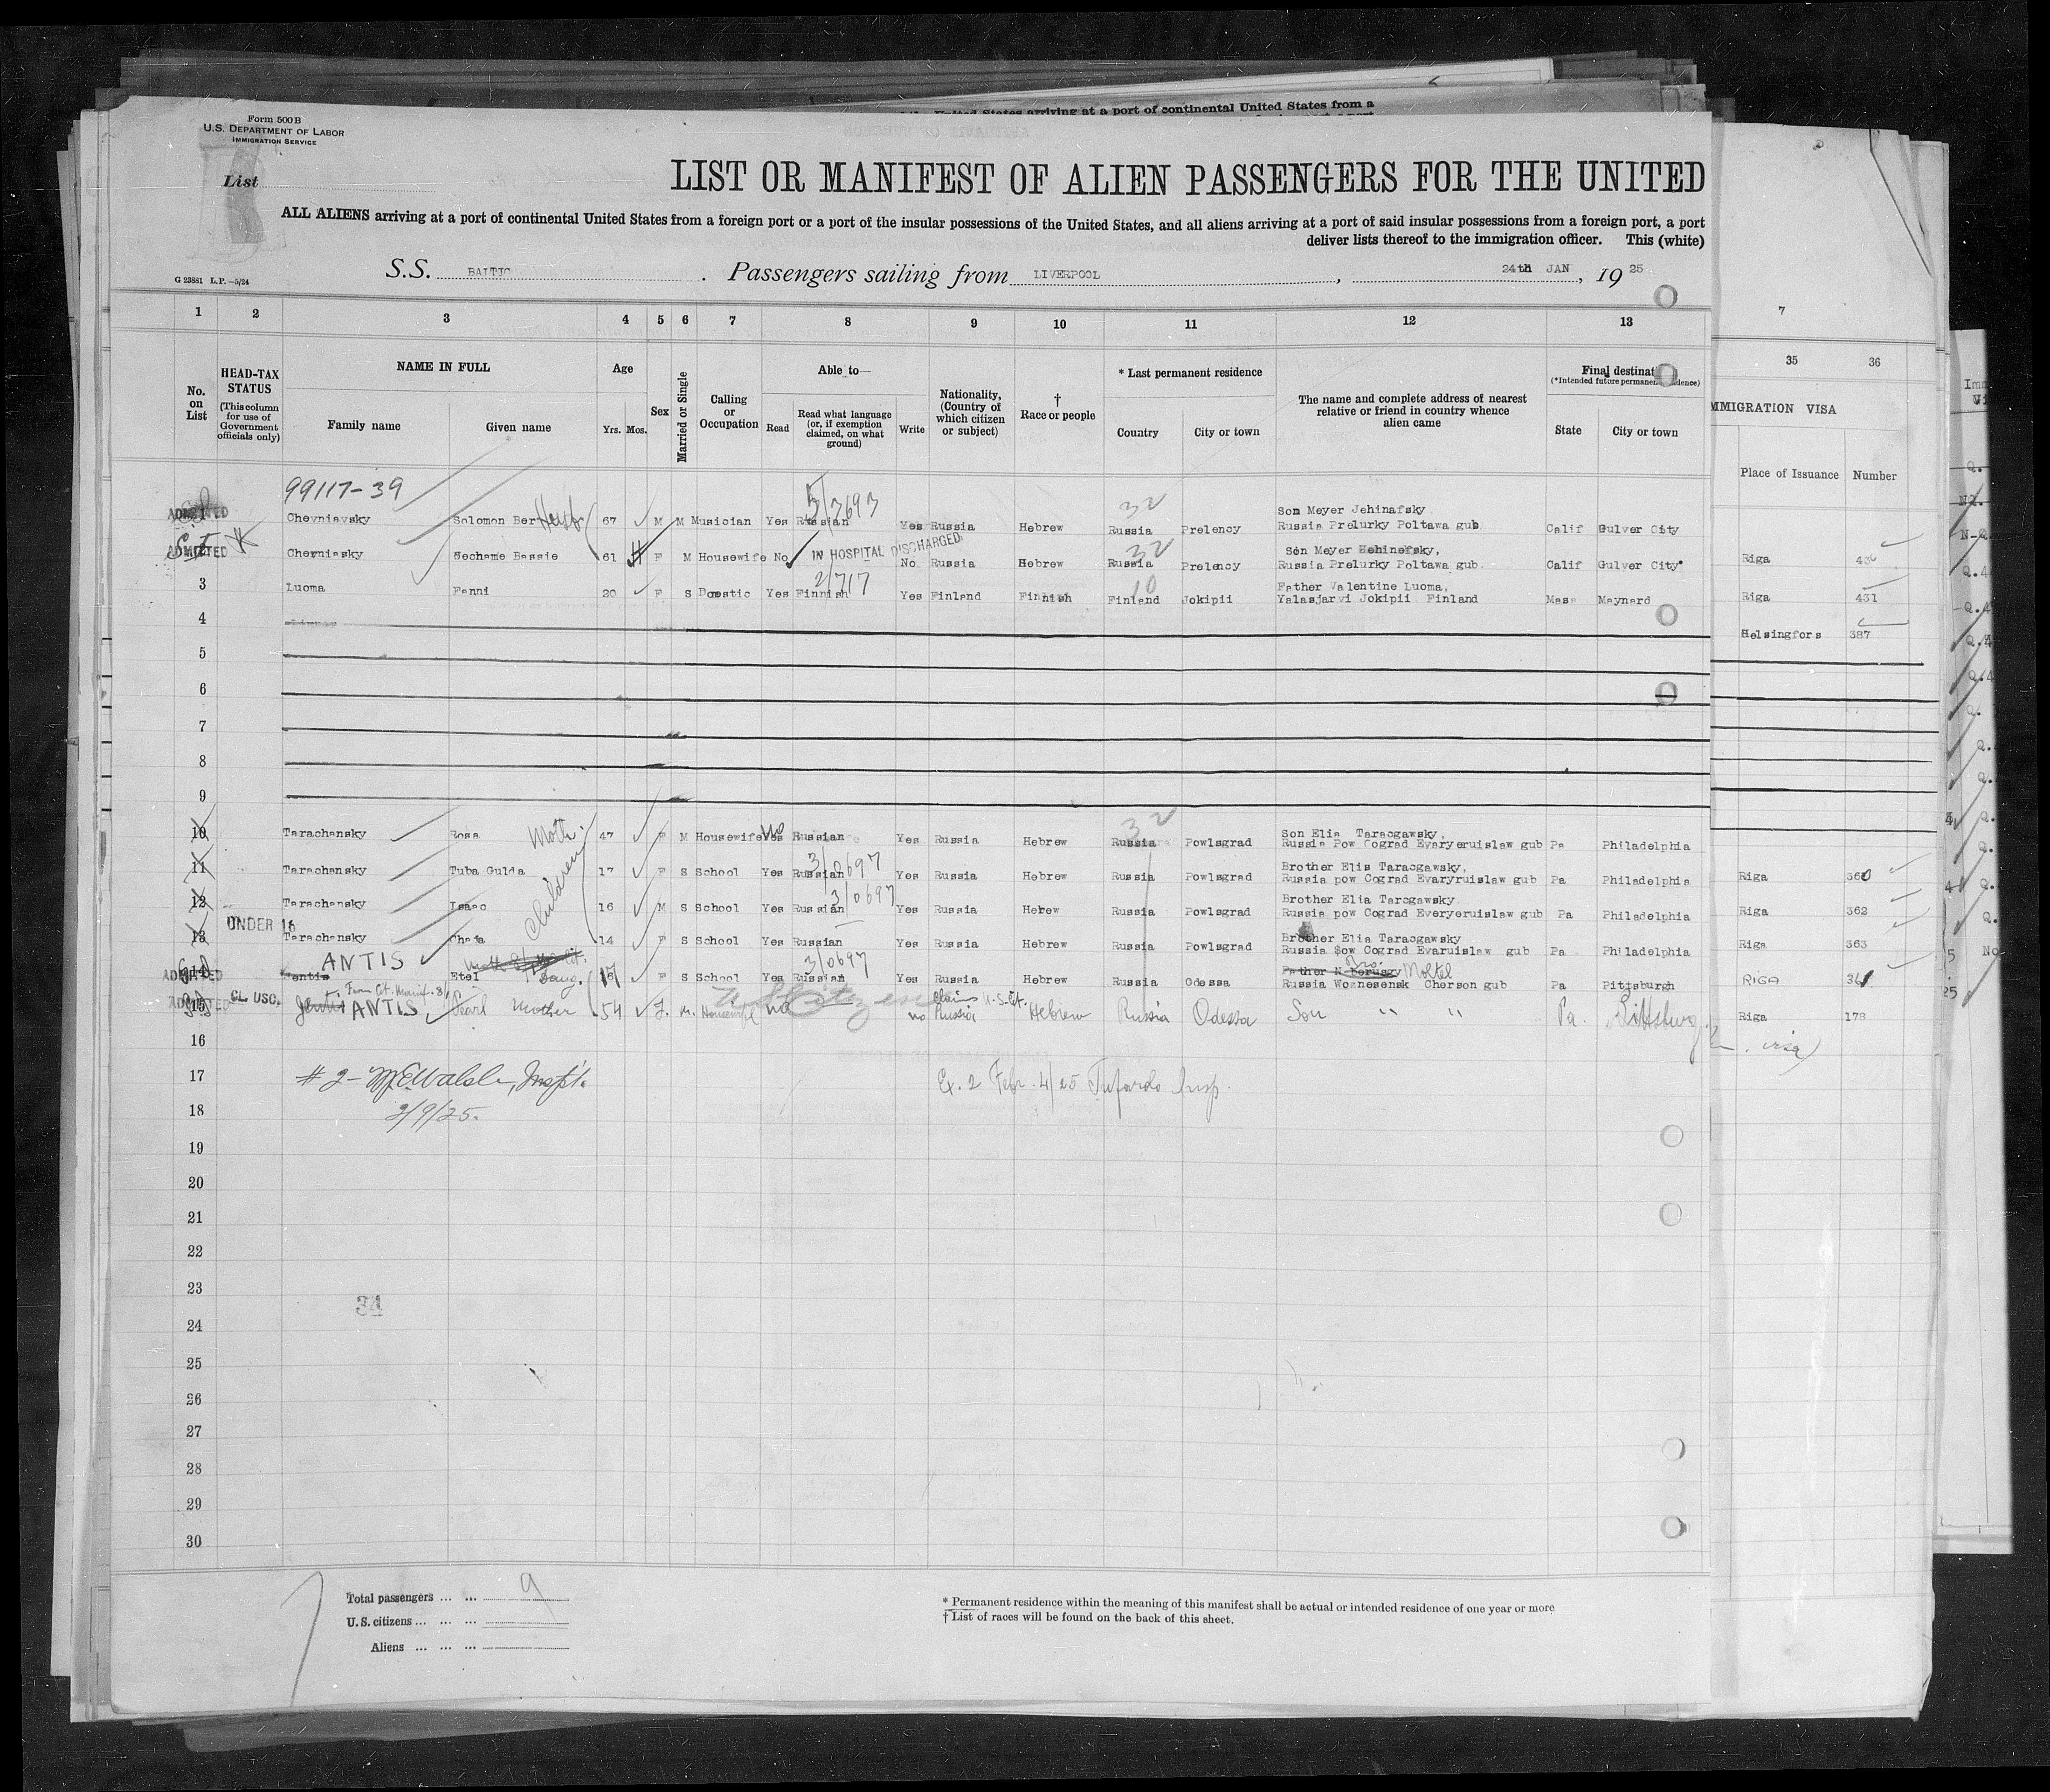 United States arriving at a port of continental United States from a
Form 500 B
U.S. DEPARTMENT OF LABOR
IMMIGRATION SERVICE
List
LIST OR MANIFEST OF ALIEN PASSENGERS FOR THE UNITED
ALL ALIENS arriving at a port of continental United States from a foreign port or a port of the insular possessions of the United States, and all aliens arriving at a port of said insular possessions from a foreign port, a port
deliver lists thereof to the immigration officer. This (white)
G 23881 L.P.—5/24
S.S. BALTIC . Passengers sailing from LIVERPOOL , 24th JAN , 19 25
1 2 3 4 5 6 7 8 9 10 11 12 13
7
35 36
No. on List
HEAD-TAX STATUS
(This column for use of Government officials only)
NAME IN FULL
Family name Given name
Age
Yrs. Mos.
Sex
Married or Single
Calling or Occupation
Able to—
Read
Read what language (or, if exemption claimed, on what ground)
Write
Nationality, (Country of which citizen or subject)
† Race or people
* Last permanent residence
Country City or town
The name and complete address of nearest relative or friend in country whence alien came
Final destinat
(*Intended future permanen dence)
State City or town
MMIGRATION VISA
Place of Issuance Number
99117-39
3/3693
32
ADMITTED Chevniavsky Solomon Ber 67 M M Musician Yes Russian Yes Russia Hebrew Russia Prelency Son Meyer Jehinafsky Russia Prelurky Poltawa gub Calif Gulver City
IN HOSPITAL DISCHARGED
32
ADMITTED Cherniasky Sechame Bassie 61 F M Housewife No No Russia Hebrew Russia Prelency Son Meyer Hehinefsky, Russia Prelurky Poltawa gub. Calif Gulver City
Riga 430
2/717
10
3 Luoma Fanni 20 F S Domstic Yes Finnish Yes Finland Finnish Finland Jokipii Father Valentine Luoma, Yalasjarvi Jokipii Finland Mass Maynard
Riga 431
4
Helsingfors 387
5
6
7
8
9
32
10 Tarachansky Rosa Moth. 47 F M Housewife Yes No Russian Yes Russia Hebrew Russia Powlsgrad Son Elia Taracgawsky, Russia Pow Cograd Evaryeruislaw gub Pa Philadelphia
3/0697
11 Tarachansky Tuba Gulda 17 F S School Yes Russian Yes Russia Hebrew Russia Powlsgrad Brother Elis Taracgawsky, Russia pow Cograd Evaryruislaw gub Pa Philadelphia
Riga 360
Children
3/0697
12 Tarachansky Isaac 16 M S School Yes Russian Yes Russia Hebrew Russia Powlsgrad Brother Elia Taracgawsky Russia pow Cograd Everyeruislaw gub Pa Philadelphia
Riga 362
UNDER 16
13 Tarachansky Chaja 14 F S School Yes Russian Yes Russia Hebrew Russia Powlsgrad Brother Elia Taracgawsky Russia Sow Cograd Evaruislaw gub Pa Philadelphia
Riga 363
ANTIS
3/0697
ADMITTED Etel Daug. 17 F S School Yes Russian Yes Russia Hebrew Russia Odessa Father N Bro. Mottel Russia Woznesensk Cherson gub Pa Pittsburgh
RIGA 361
CL. USC.
U.S. Citizen
Claims U.S. Cit.
ADMITTED 15 ANTIS Pearl Mother 54 F. M. Housewife no no Russia Hebrew Russia Odessa Son " " Pa. Pittsburg
Riga 178
visa
16
17 # 2 - McE Walsh, Insp't. Ex. 2 Febr. 4/25 Tufardo Insp.
18 2/9/25.
19
20
21
22
23
34
24
25
26
27
28
29
30
Total passengers ... ... 9
U.S. citizens ... ... ...
Aliens ... ... ...
* Permanent residence within the meaning of this manifest shall be actual or intended residence of one year or more
† List of races will be found on the back of this sheet.